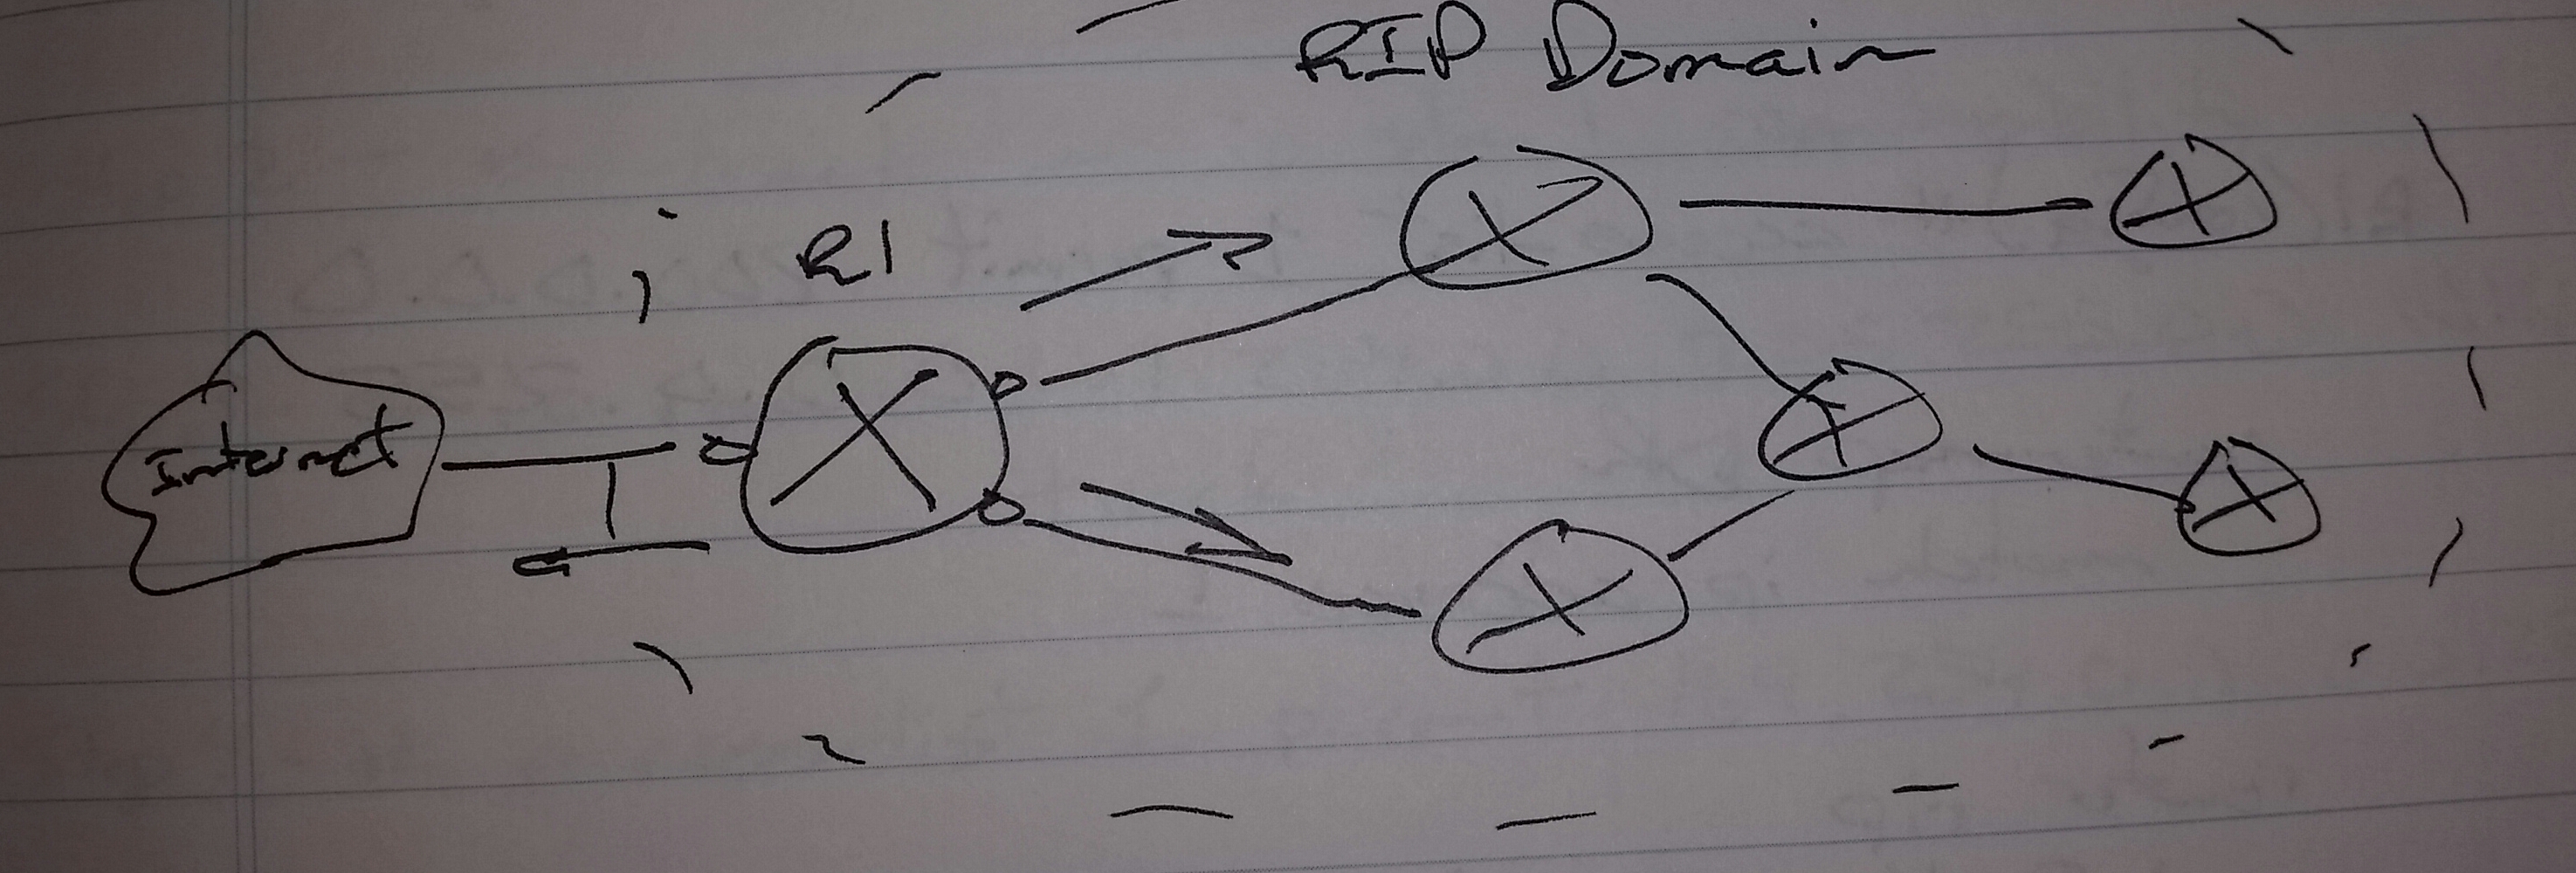 RIP Domain
R1
Internet